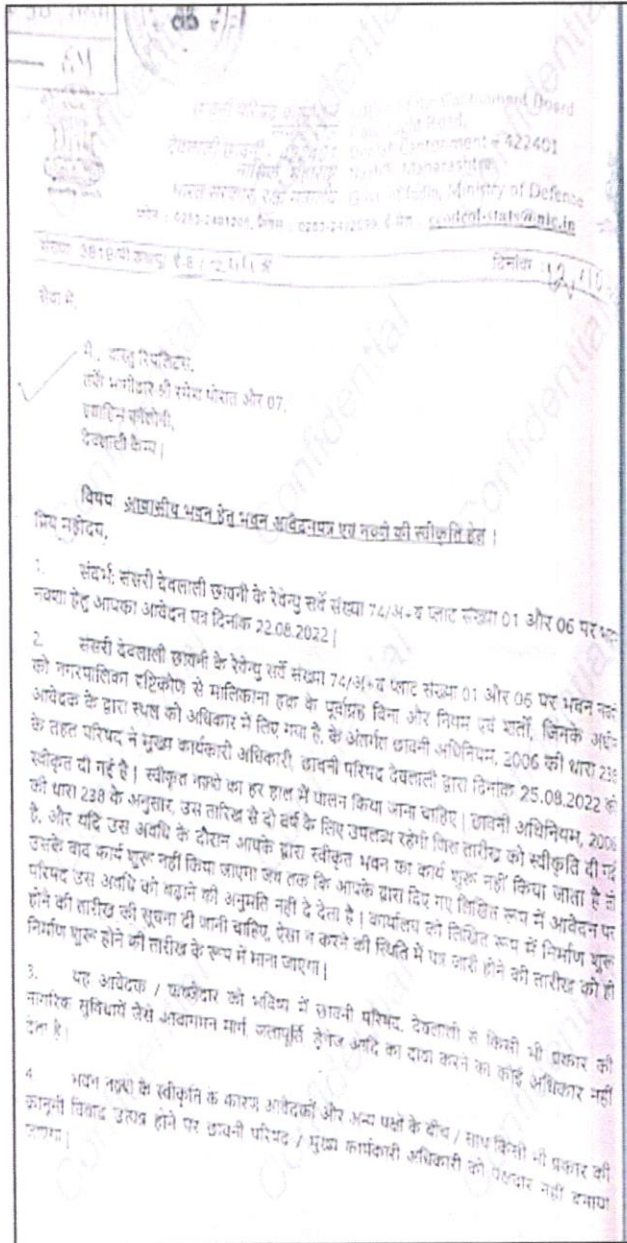 छावनी परिषद कार्यालय Office of the Cantonment Board
Road,
देवलाली छावनी Cantonment - 422401
नासिक, महाराष्ट्र Nashik, Maharashtra
भारत सरकार, रक्षा मंत्रालय Govt. of India, Ministry of Defence
दिनांक :
सेवा में,
मे., वास्तु रियलिटस,
तर्फे भागीदार श्री रमेश और 07,
देवलाली कैम्प |
विषय: आवासीय भवन हेतु भवन आवेदनपत्र एवं नक्शे की स्वीकृति हेतु |
प्रिय महोदय,
1. संदर्भ: संसरी देवलाली छावनी के रेवेन्यु सर्वे संख्या 74/अ+ब प्लाट संख्या 01 और 06 पर भवन
नक्शा हेतु आपका आवेदन पत्र दिनांक 22.08.2022 |
2. संसरी देवलाली छावनी के रेवेन्यु सर्वे संख्या 74/अ+ब प्लाट संख्या 01 और 06 पर भवन नक्शे
को नगरपालिका दृष्टिकोण से मालिकाना हक के पूर्वाग्रह बिना और नियम एवं शर्तों, जिनके अधीन
आवेदक के द्वारा स्थल को अधिकार में लिए गया है, के अंतर्गत छावनी अधिनियम, 2006 की धारा 238
के तहत परिषद ने मुख्य कार्यकारी अधिकारी, छावनी परिषद देवलाली द्वारा दिनांक 25.08.2022 को
स्वीकृत दी गई है | स्वीकृत नक्शे का हर हाल में पालन किया जाना चाहिए | छावनी अधिनियम, 2006
की धारा 238 के अनुसार, उस तारिख से दो वर्ष के लिए उपलब्ध रहेगी जिस तारीख को स्वीकृति दी गई
है, और यदि उस अवधि के दौरान आपके द्वारा स्वीकृत भवन का कार्य शुरू नहीं किया जाता है तो
उसके बाद कार्य शुरू नहीं किया जाएगा जब तक कि आपके द्वारा दिए गए लिखित रूप में आवेदन पर
परिषद उस अवधि को बढ़ाने की अनुमति नही दे देता है | कार्यालय को लिखित रूप में निर्माण शुरू
होने की तारीख की सूचना दी जानी चाहिए, ऐसा न करने की स्थिति में पत्र जारी होने की तारीख को ही
निर्माण शुरू होने की तारीख के रूप में माना जाएगा |
3. यह आवेदक / कब्जेदार को भविष्य में छावनी परिषद, देवलाली से किसी भी प्रकार की
नागरिक सुविधायें जैसे आवागमन मार्ग, जलापूर्ति, ड्रेनेज आदि का दावा करने का कोई अधिकार नहीं
देता है |
4. भवन नक्शे के स्वीकृति के कारण आवेदकों और अन्य पक्षों के बीच / साथ किसी भी प्रकार की
कानूनी विवाद उत्पन्न होने पर छावनी परिषद / मुख्य कार्यकारी अधिकारी को पक्षदार नहीं बनाया
जाएगा |
Confidential